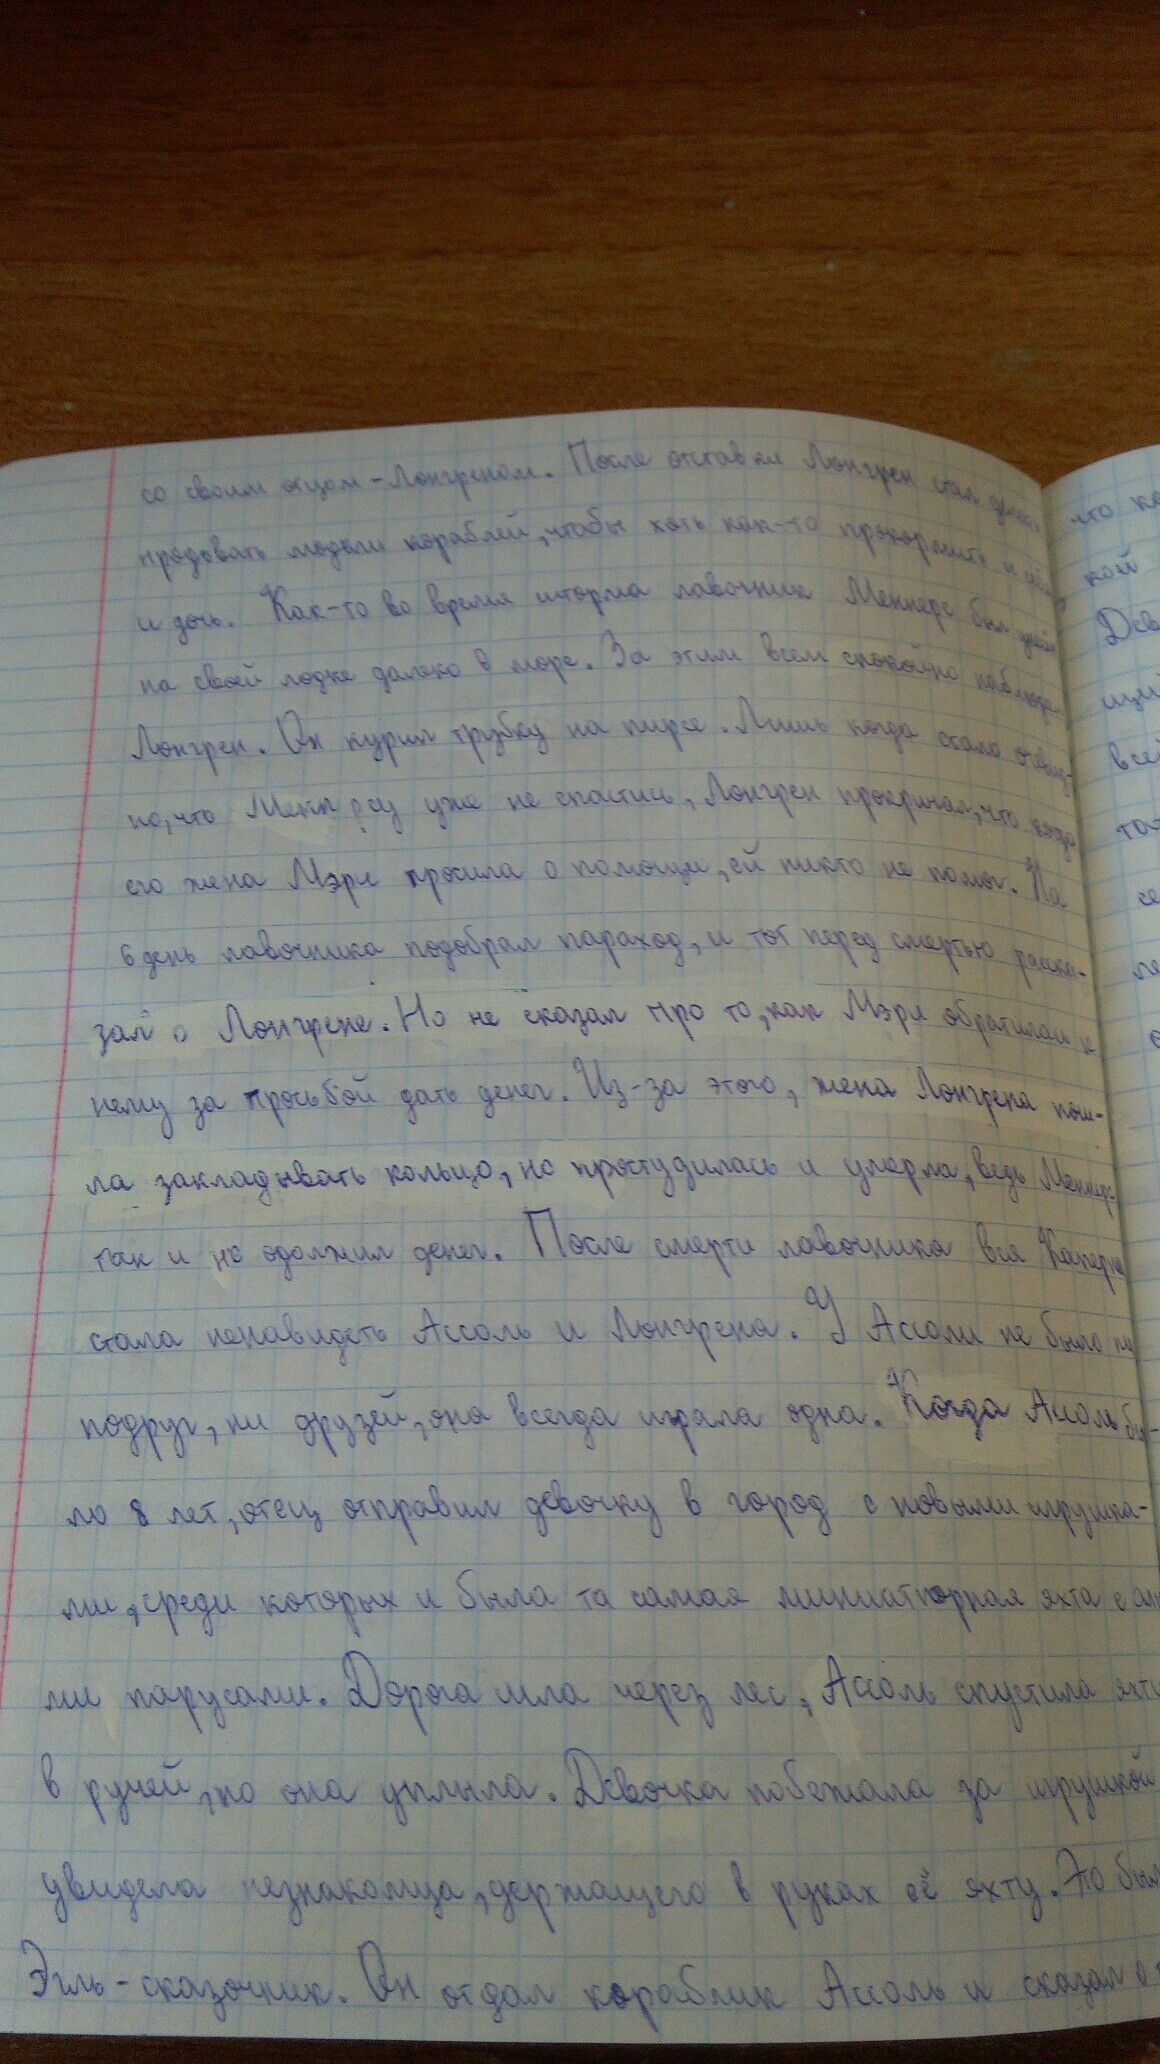 со своим отцом - Лонгреном. После отставки Лонгрен стал
продовать модели кораблей, чтобы хоть как-то прокормить и
и дочь. Как-то во время шторма лавочник Меннерс был
на своей лодке далеко в море. За этим всем спокойно наблюда-
Лонгрен. Он курил трубку на пирсе. Лишь когда стало очевид-
но, что Меннерсу уже не спастись, Лонгрен прокричал, что когда
его жена Мэри просила о помощи, ей никто не помог. На
6 день лавочника подобрал параход, и тот перед смертью расска-
зал о Лонгрене. Но не сказал про то, как Мэри обратилась к
нему за просьбой дать денег. Из-за этого, жена Лонгрена пош-
ла закладывать кольцо, но простудилась и умерла, ведь Меннерс
так и не одолжил денег. После смерти лавочника вся Каперна
стала ненавидеть Ассоль и Лонгрена. У Ассоли не было ни
подруг, ни друзей, она всегда играла одна. Когда Ассоль бы-
ло 8 лет, отец отправил девочку в город с новыми игрушка-
ми, среди которых и была та самая миниатюрная яхта с алы
ми парусами. Дорога шла через лес, Ассоль спустила яхту
в ручей, но она уплыла. Девочка побежала за игрушкой
увидела незнакомца, держащего в руках её яхту. Это был
Эгль - сказочник. Он отдал кораблик Ассоль и сказал о
что
кой
Дев
щий
всей